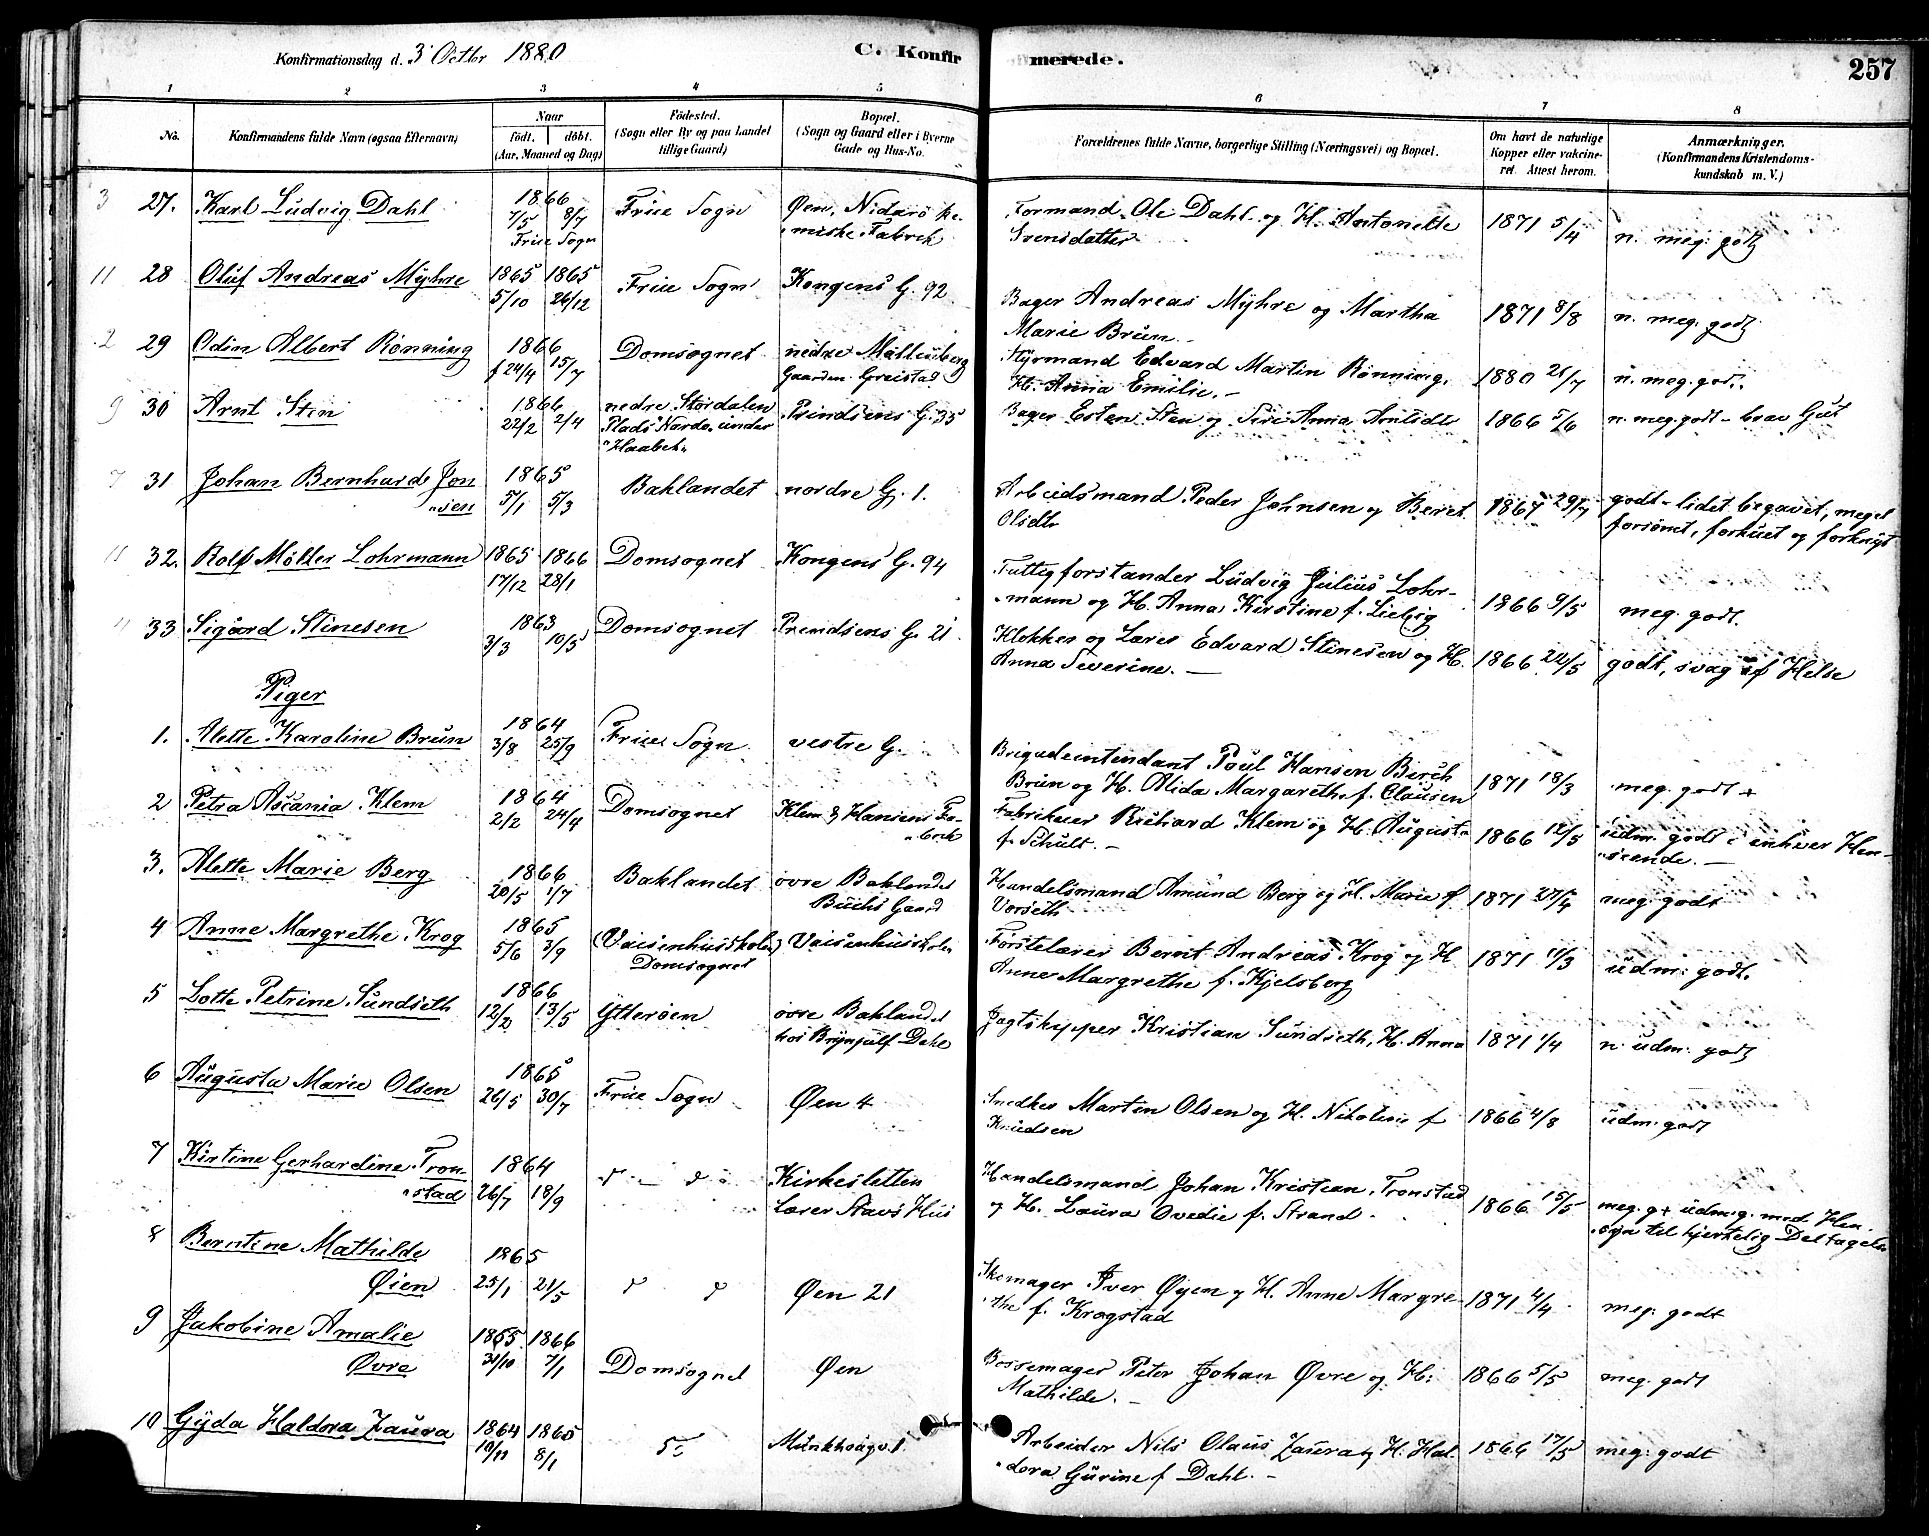 Konfirmationsdag d. 3 Octbr 1880
C. Konfirmerede.
257
1 2 3 4 5 6 7 8
No.
Konfirmandens fulde Navn (ogsaa Efternavn)
Naar
födt. döbt.
(Aar, Maaned og Dag)
Födested.
(Sogn eller By og paa Landet
tillige Gaard)
Bopæl.
(Sogn og Gaard eller i Byerne
Gade og Hus-No.
Forældrenes fulde Navne, borgerlige Stilling (Næringsvei) og Bopæl.
Om havt de naturlige
Kopper eller vakcine-
ret. Attest herom.
Anmærkninger.
(Konfirmandens Kristendoms-
kundskab m. V.)
3 27. Karl Ludvig Dahl 1866 7/5 8/7 Frue Sogn Frue Sogn Øen, Nidarö ke-
miske Fabrik Formand Ole Dahl og H. Antonette
Svensdatter 1871 5/4 n. meg. godt
11 28 Oluf Andreas Myhre 1865 5/10 1865 26/12 Frue Sogn Kongens G. 92 Bager Andreas Myhre og Martha
Marie Brun 1871 8/8 n. meg. godt
2 29 Odin Albert Rønning 1866 f 24/4 15/7 Domsognet nedre Möllenberg
Gaarden Greistad Styrmand Edvard Martin Rønning,
H. Anna Emilie. 1880 21/7 n. meg. godt.
9 30 Arnt Sten 1866 22/2 2/4 nedre Stördalen
Plads under Prindsens G. 35 Bager Esten Sten og Siri Anna Arntsdtr 1866 5/6 n. meg. godt - brav Gut
7 31 Johan Bernhard Jon
sen 1865 5/1 5/3 Baklandet nordre G. 1. Arbeidsmand Peder Johnsen og Beret
Olsdtr 1867 29/7 godt - lidet begavet, meget
forsömt, forkuet og forknyt
11 32. Rolf Möller Lohrmann 1865 17/12 1866 28/1 Domsognet Kongens G. 94 Fattigforstander Ludvig Julius Lohr-
mann og H. Anna Kirstine f. Liebig 1866 9/5 meg. godt.
11 33 Sigurd Stinesen 1863 3/3 10/5 Domsognet Prindsens G. 21 Klokker og Lærer Edvard Stinesen og H.
Anna Severine. 1866 22/5 godt, svag af Helse
Piger
1. Alette Karoline Brun 1864 3/8 25/9 Frue Sogn vestre G. Brigadeintendant Poul Hansen Birch
Brun og H. Alida Margarethe f. Clausen 1871 18/3 meg. godt +
2 Petra Ascania Klem 1864 2/2 24/4 Domsognet Klem & Hansens Fa-
brik Fabrikeier Richard Klem og H. Augusta
f. Schult. 1866 12/5 udm. godt i enhver Hen-
seende.
3. Alette Marie Berg 1866 20/5 1/7 Baklandet övre Baklandet
Buchs Gaard Handelsmand Amund Berg og H. Marie f
Vorseth 1871 27/4 meg. godt
4 Anne Margrethe Krog 1865 5/6 3/9 (Vaisenhusskolen)
Domsognet Vaisenhusskolen Förstelærer Bernt Andreas Krog og H
Anne Margrethe f. Kjelsberg 1871 11/3 udm. godt.
5 Lotte Petrine Sundseth 1866 12/2 13/5 Ytteröen övre Baklandet
hos Brynjulf Dahl Jagtskypper Kristian Sundseth, H. Anna 1871 1/4 n. udm. godt
6 Augusta Marie Olsen 1865 26/5 30/7 Frue Sogn Øen 4 Snedker Martin Olsen og H. Nikoline f
Knudsen 1866 4/8 udm. godt
7 Kirtine Gerhardine Tron
stad 1864 26/7 18/9 Kirkesletten
Lærer Stavs Hus Handelsmand Johan Kristian Tronstad
og H. Laura Ovedie f. Strand 1866 15/5 meg. g + udm. g. med Hen-
syn til hjertelig Deltagelse
8 Berntine Mathilde
Øien 1865 25/1 21/5 Øen 21 Skomager Iver Øyen og H. Anne Margre-
the f. Krogstad 1871 4/4 meg. godt
9 Jakobine Amalie
Øvre 1865 31/10 1866 7/1 Domsognet Øen Bössemager Peter Johan Øvre og H:
Mathilde. 1866 5/5 meg. godt
10 Gyda Haldora Zaura 1864 10/11 1865 8/1 Munkhaugv. 1. Arbeider Nils Olaus Zaura og H. Hal-
dora Gurine f. Dahl. 1866 17/5 meg. godt